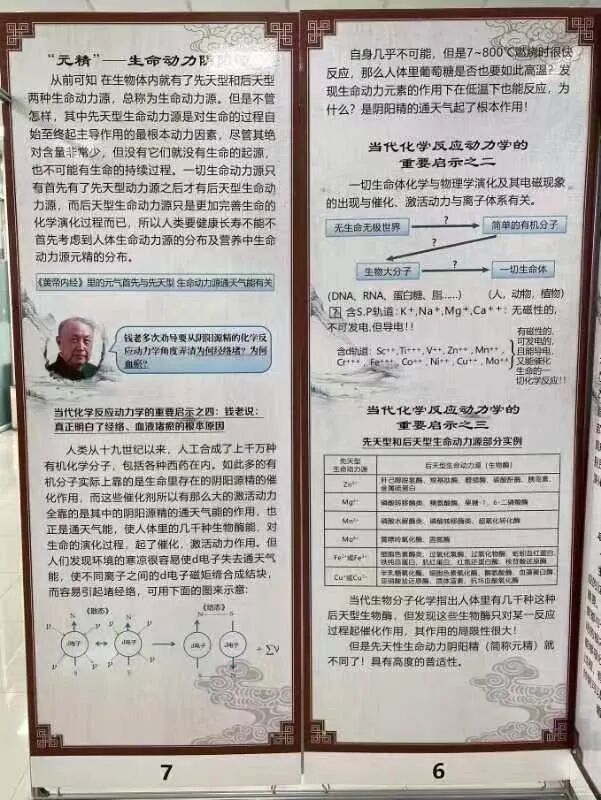 “元精”——生命动力阴阳
从前可知 在生物体内就有了先天型和后天型
两种生命动力源，总称为生命动力源。但是不管
怎样，其中先天型生命动力源是对生命的过程自
始至终起主导作用的最根本动力因素，尽管其绝
对含量非常少，但没有它们就没有生命的起源，
也不可能有生命的持续过程。一切生命动力源只
有首先有了先天型动力源之后才有后天型生命动
力源，而后天型生命动力源只是更加完善生命的
化学演化过程而已，所以人类要健康长寿不能不
首先考虑到人体生命动力源的分布及营养中生命
动力源元精的分布。
《黄帝内经》里的元气首先与先天型 生命动力源通天气能有关
钱老多次劝导要从阴阳源精的化学反
应动力学角度弄清为何经络堵？为何
血瘀？
当代化学反应动力学的重要启示之四：钱老说：
真正明白了经络、血液堵瘀的根本原因
人类从十九世纪以来，人工合成了上千万种
有机化学分子，包括各种西药在内。如此多的有
机分子实际上靠的是生命里存在的阴阳源精的催
化作用，而这些催化剂所以有那么大的激活动力
全靠的是其中的阴阳源精的通天气能的作用，也
正是通天气能，使人体里的几千种生物酶能，对
生命的演化过程，起了催化、激活动力作用。但
人们发现环境的寒凉很容易使d电子失去通天气
能，使不同离子之间的d电子磁矩缔合成结块，
而容易引起堵经络，可用下面的图来示意：
《散态》
《结态》
d电子
d电子
d电子
d电子
7
自身几乎不可能，但是7~800℃燃烧时很快
反应，那么人体里葡萄糖是否也要如此高温？发
现生命动力元素的作用下在低温下也能反应，为
什么？是阴阳精的通天气起了根本作用！
当代化学反应动力学的
重要启示之二
一切生命体化学与物理学演化及其电磁现象
的出现与催化、激活动力与离子体系有关。
无生命无极世界
?
简单的有机分子
?
生物大分子
?
一切生命体
(DNA、RNA、蛋白糖、脂……)
(人，动物，植物)
含S.P轨道：K⁺,Na⁺,Mg⁺,Ca⁺⁺：无磁性的,
不可发电,但导电!!
含d轨道：Sc⁺⁺,Ti⁺⁺⁺, V⁺⁺, Zn⁺⁺ , Mn⁺⁺ ,
Cr⁺⁺⁺, Fe⁺⁺⁺, Co⁺⁺, Ni⁺⁺, Cu⁺⁺, Mo⁺⁺
有磁性的,
可发电的,
且能导电,
又能催化
生命的一
切化学反应!!
当代化学反应动力学的
重要启示之三
先天型和后天型生命动力源部分实例
先天型
生命动力源
后天型生命动力源（生物酶）
Zn²⁺
Mg²⁺
磷酸转移酶类、精氨酸酶、果糖-1、6-二磷酸酶
Mn²⁺
磷酸水解酶类、磷酸转移酶类、超氧转化酶
Mo
黄嘌呤氧化酶、固氮酶
Fe²⁺或Fe³⁺
Cu⁺或Cu²⁺
当代生物分子化学指出人体里有几千种这种
后天型生物酶，但发现这些生物酶只对某一反应
过程起催化作用，其作用的局限性很大！
但是先天性生命动力阴阳精（简称元精）就
不同了！具有高度的普适性。
6